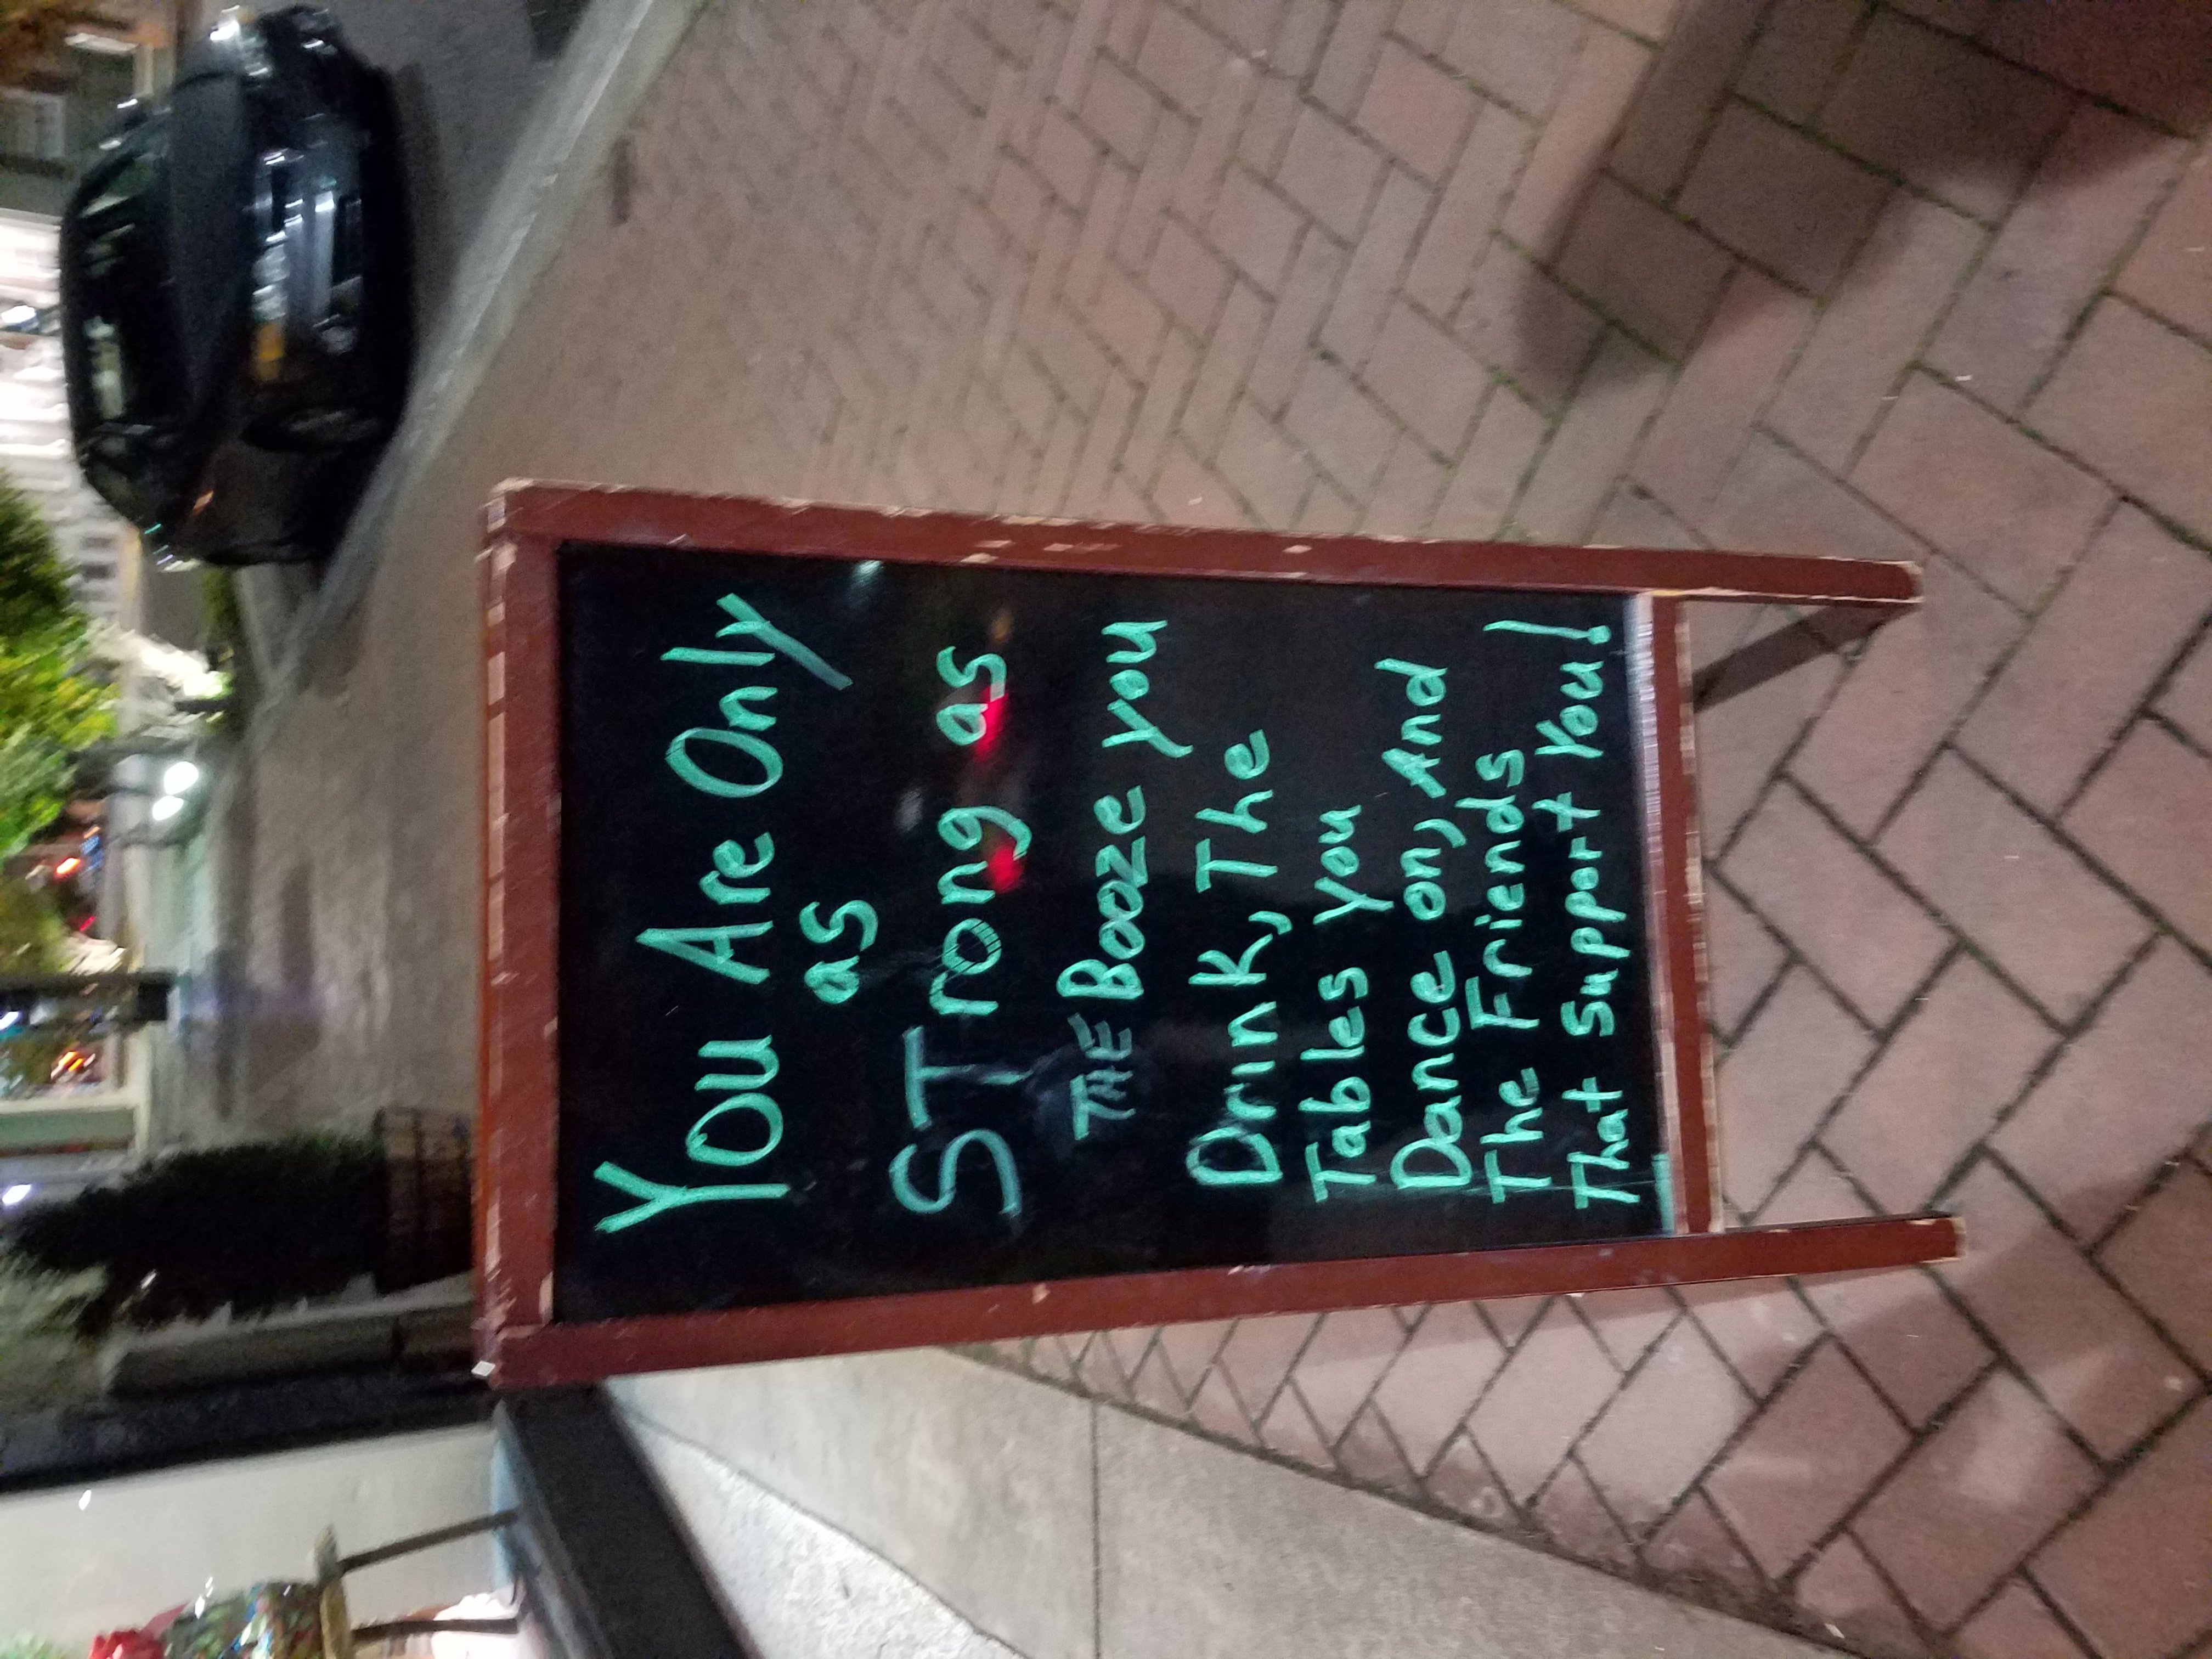 You Are Only
as
STrong as
THE Booze you
Drink, The
Tables you
Dance on, And
The Friends
That Support You!